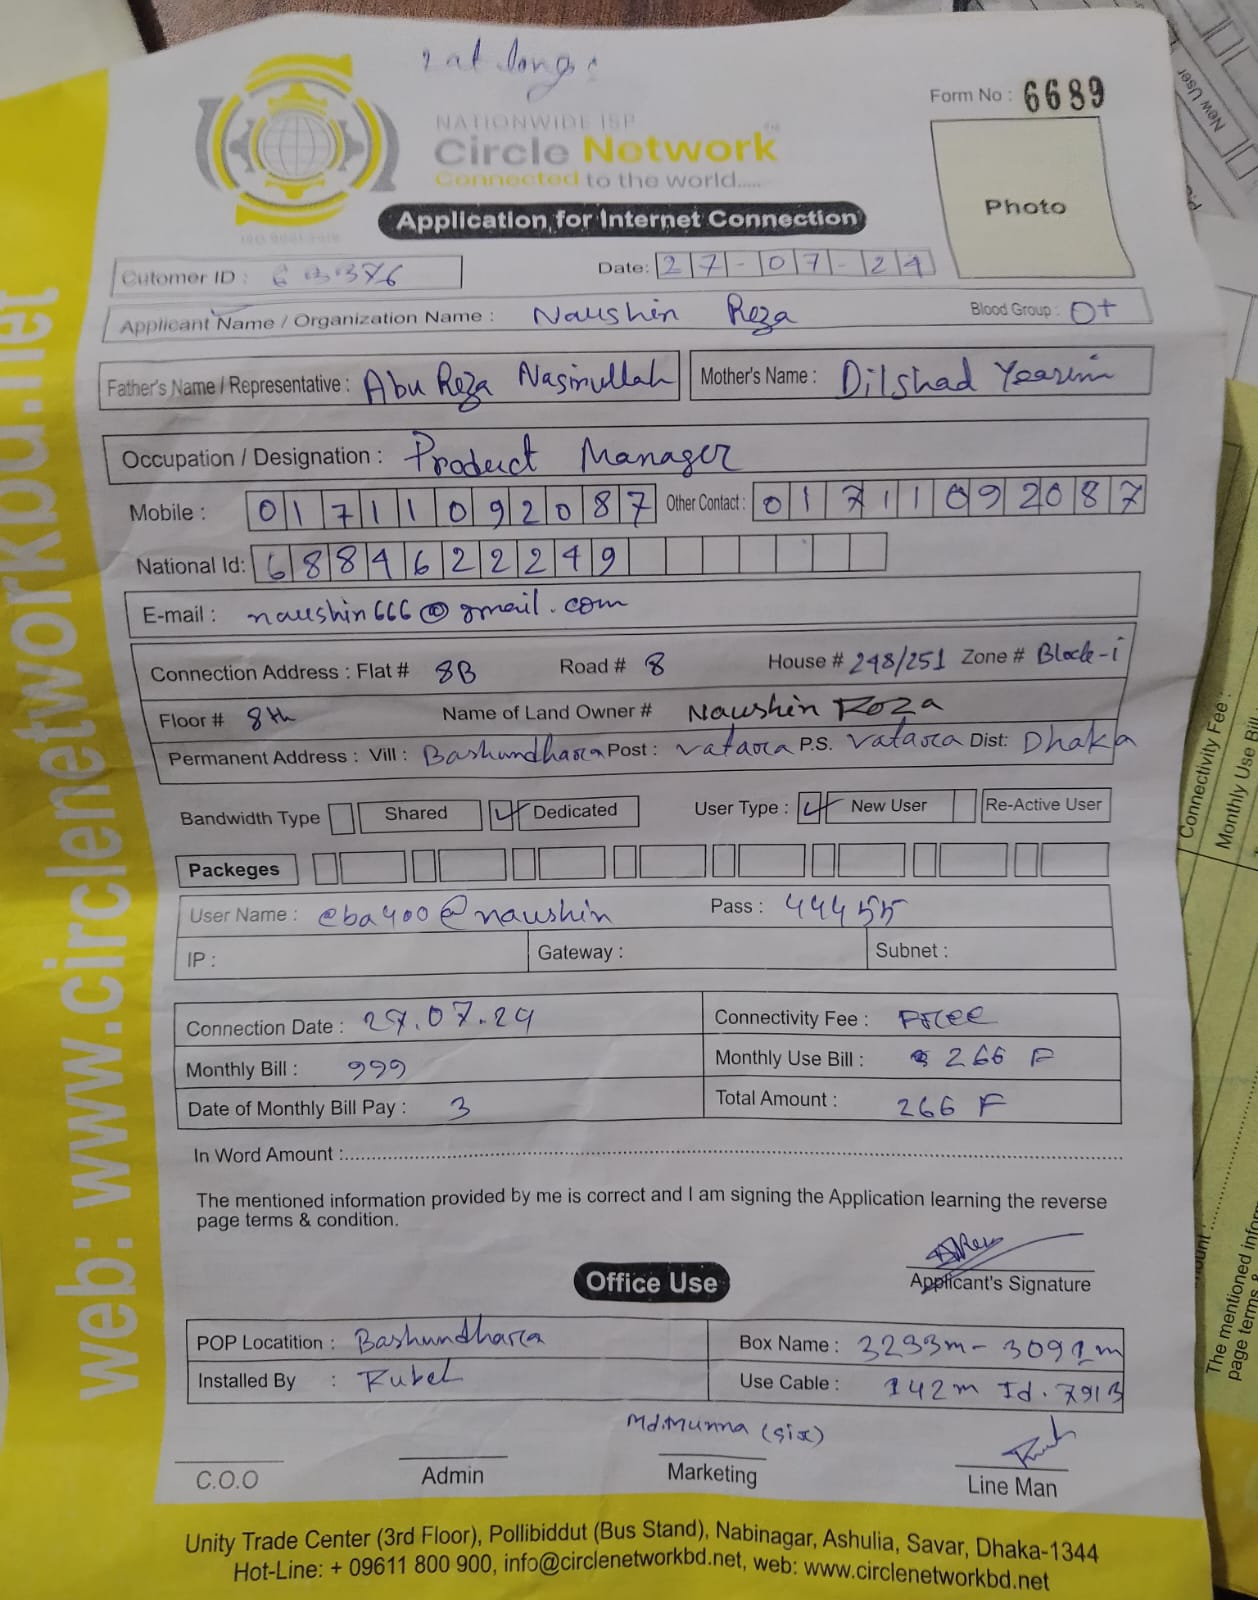 Lat long:
Form No : 6689
NATIONWIDE ISP
Circle Network
Connected to the world.....
Photo
Application for Internet Connection
Cutomer ID :
Date: 27-07-24
Applicant Name / Organization Name : Naushin Reza Blood Group : O+
Father's Name / Representative : Abu Reza Nasirullah Mother's Name : Dilshad
Occupation / Designation : Product Manager
Mobile : 01711092087 Other Contact : 01711092087
National Id: 6884622249
E-mail : naushin666@gmail.com
Connection Address : Flat # 8B Road # 8 House # 248/251 Zone # Block-i
Floor # 8th Name of Land Owner # Naushin Roza
Permanent Address : Vill : Bashundhara Post : vatara P.S. vatara Dist: Dhaka
Bandwidth Type Shared Dedicated User Type : New User Re-Active User
Packeges
User Name : eba400@naushin Pass : 44455
IP : Gateway : Subnet :
Connection Date : 27.07.24 Connectivity Fee : Free
Monthly Bill : 999 Monthly Use Bill : 266 F
Date of Monthly Bill Pay : 3 Total Amount : 266 F
In Word Amount :
The mentioned information provided by me is correct and I am signing the Application learning the reverse
page terms & condition.
Applicant's Signature
Office Use
POP Locatition : Bashundhara Box Name : 3233m - 3091m
Installed By : Rubel Use Cable : 142m Id. 7913
Md.Munna (Six)
C.O.O Admin Marketing Line Man
Unity Trade Center (3rd Floor), Pollibiddut (Bus Stand), Nabinagar, Ashulia, Savar, Dhaka-1344
Hot-Line: + 09611 800 900, info@circlenetworkbd.net, web: www.circlenetworkbd.net
web: www.circlenetworkbd.net
New User
Connectivity Fee :
Monthly Use Bill
The mentioned infor
page terms &